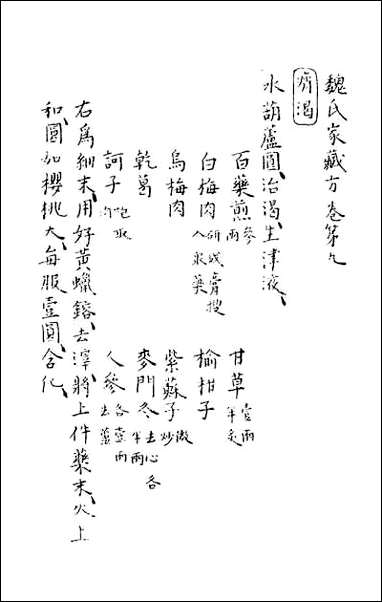 魏氏家藏方卷第九
痟渴
水葫蘆圓治渴生津液
百藥煎 参兩 甘草 壹兩半炙
白梅肉 研成膏搜入衆藥 榆柑子
烏梅肉 紫蘇子 微炒
乾葛 麥門冬 去心各半兩
訶子 炮取肉 人參 去蘆各壹兩
右爲細末用好黄蠟鎔去滓將上件藥末火上
和圓如櫻桃大每服壹圓含化